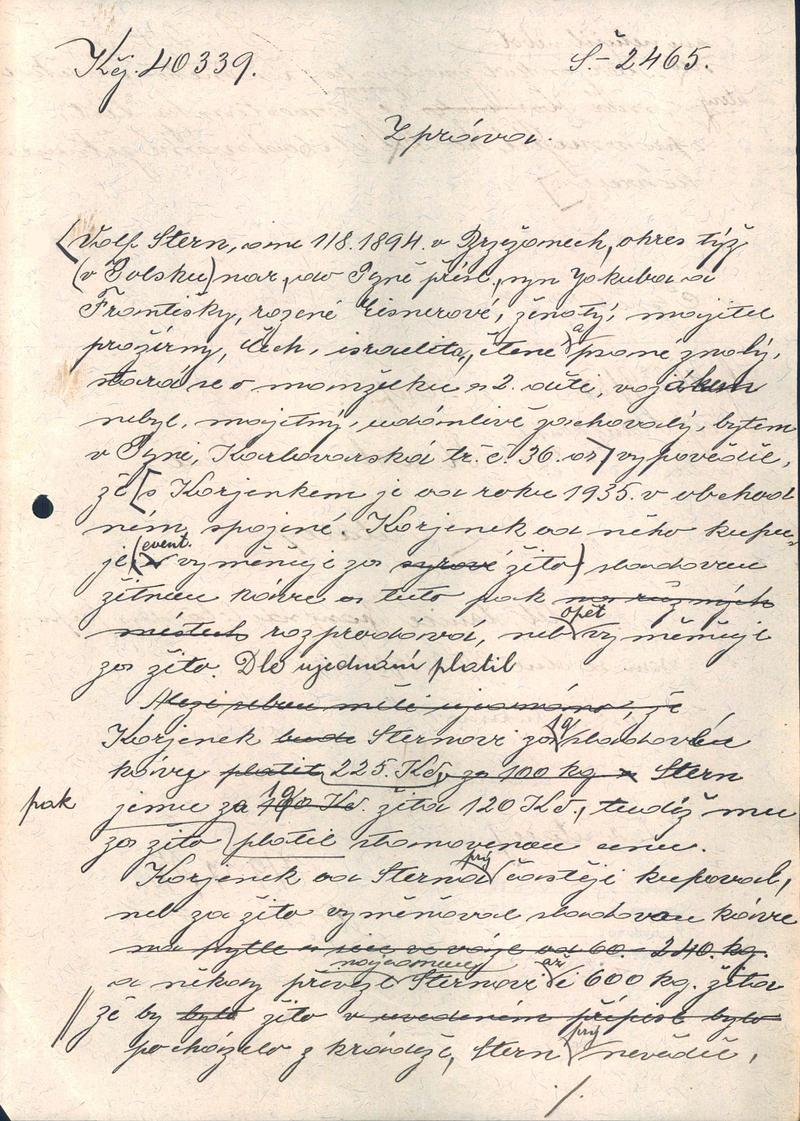 Kčj. 40339. S.-2465.
Zpráva.
(Volf Stern, dne 1/8. 1894. v Brzežanech, okres týž
(v Polsku) nar., do Plzně přísl., syn Jakuba a
Františky, rozené Eisnerové, ženatý, majitel
pražírny, Čech, israelita, čtení a psaní znalý,
stará se o manželku a 2. děti, vojákem
nebyl, majetný, udánlivě zachovalý, bytem
v Plzni, Karlovarská tř. č. 36. vypověděl,
že [s Korjenkem je od roku 1935. v obchod
ním spojení. Korjenek od něho kupu-
je (event. vyměňuje za syrové žito) sladovou
žitnou kávu a tuto pak na různých
místech rozprodává, neb opět vyměňuje
za žito. Dle ujednání platil
Mezi sebou měli ujednáno, že
Korjenek bude Sternovi za 1 q sladovou
kávy platit 225. Kč, za 100 kg. Stern
pak jemu za 1 q 100 Kč. žita 120 Kč., tudíž mu
za žito platil stanovenou cenu.
Korjenek od Sterna prý častěji kupoval,
neb za žito vyměňoval sladovou kávu
na pytle a sice ve váze od 60. - 240. kg.
a někdy převzl najednou Sternovi až i 600 kg. žita
že by bylo žito v uvedeném případě bylo
pocházelo z krádeže, Stern prý nevěděl,
./.